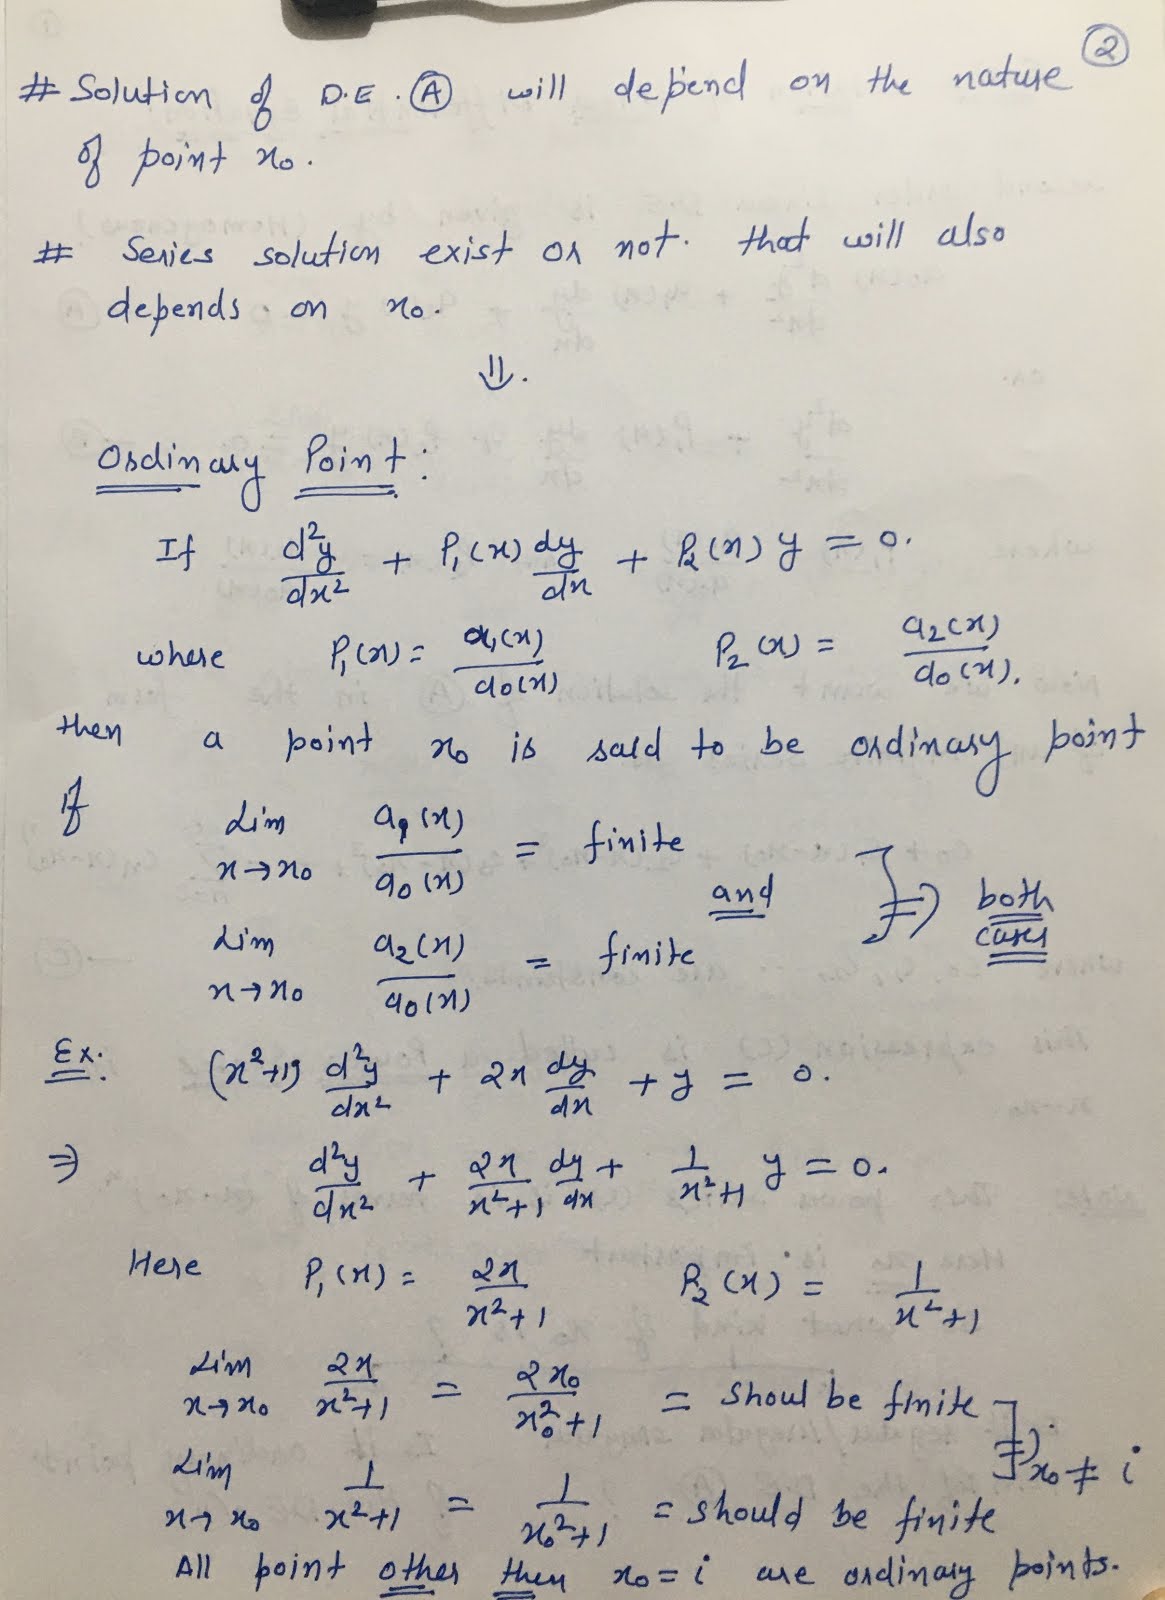 ②
# Solution of D.E. Ⓐ will depend on the nature
of point x₀.
# Series solution exist or not. that will also
depends on x₀.
⇓.
Ordinary Point:
If d²y/dx² + P₁(x) dy/dx + P₂(x) y = 0.
where P₁(x) = a₁(x)/a₀(x) P₂(x) = a₂(x)/a₀(x).
then a point x₀ is said to be ordinary point
if Lim x→x₀ a₁(x)/a₀(x) = finite
and ] ⇒ both cases
Lim x→x₀ a₂(x)/a₀(x) = finite
Ex. (x²+1) d²y/dx² + 2x dy/dx + y = 0.
⇒ d²y/dx² + 2x/x²+1 dy/dx + 1/x²+1 y = 0.
Here P₁(x) = 2x/x²+1 P₂(x) = 1/x²+1
Lim x→x₀ 2x/x²+1 = 2x₀/x₀²+1 = Shoul be finite
] ⇒ x₀ ≠ i
Lim x→x₀ 1/x²+1 = 1/x₀²+1 = should be finite
All point other then x₀ = i are ordinary points.